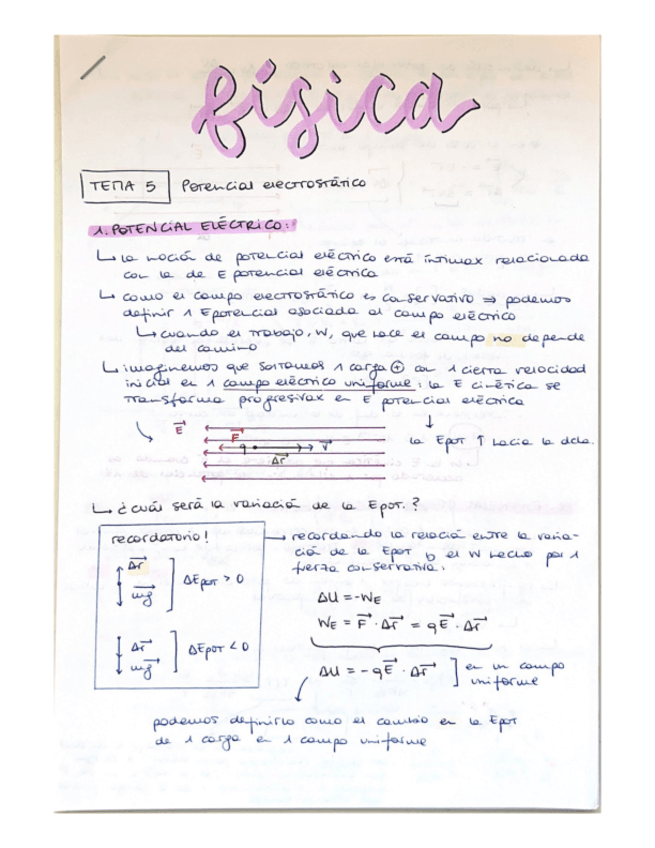 física
TEMA 5 Potencial electrostático
1. POTENCIAL ELÉCTRICO:
↳ la noción de potencial eléctrico está íntimax relacionada
con la de E potencial eléctrica
↳ como el campo electrostático es conservativo ⇒ podemos
definir 1 Epotencial asociada al campo eléctrico
↳ cuando el trabajo, W, que hace el campo no depende
del camino
↳ imaginemos que soltamos 1 carga ⊕ con 1 cierta velocidad
inicial en 1 campo eléctrico uniforme: la E cinética se
transforma progresivax en E potencial eléctrica
E⃗
F⃗
q v⃗
Δr⃗
la Epot ↑ hacia la dcha.
↳ ¿cuál será la variación de la Epot.?
recordatorio!
Δr⃗
mg⃗
ΔEpot > 0
Δr⃗
mg⃗
ΔEpot < 0
→ recordando la relación entre la varia-
ción de la Epot y el W hecho por 1
fuerza conservativa:
ΔU = -WE
WE = F⃗ · Δr⃗ = qE⃗ · Δr⃗
ΔU = -qE⃗ · Δr⃗ ] en un campo
uniforme
podemos definirlo como el cambio en la Epot
de 1 carga en 1 campo uniforme